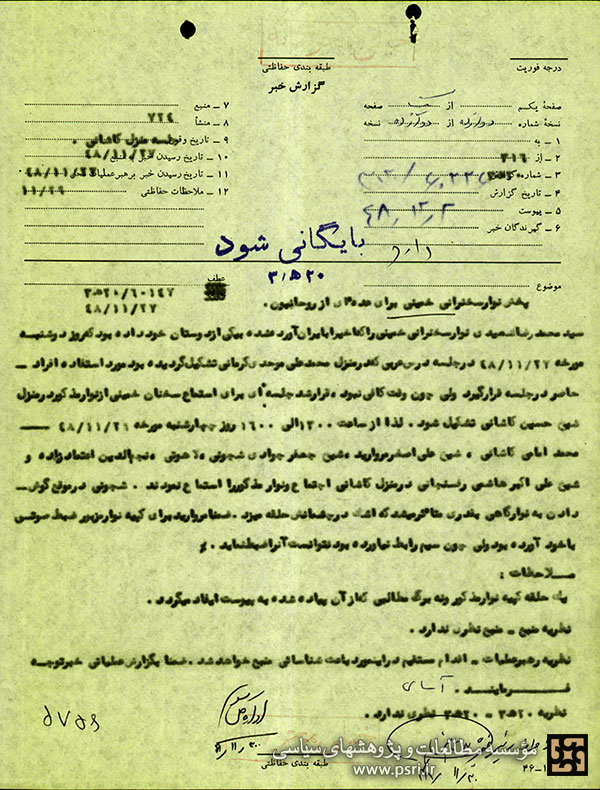 درجه فوریت
طبقه بندی حفاظتی
گزارش خبر
صفحهٔ یکم از یک صفحه
نسخهٔ شماره از نسخه
۱ ـ به
۲ ـ از ۳۱۶
۳ ـ شماره
۴ ـ تاریخ گزارش
۵ ـ پیوست
۶ ـ گیرندگان خبر
۷ ـ منبع
۸ ـ منشأ ۷۲۴
۹ ـ تاریخ وقوع جلسه منزل کاشانی .
۱۰ ـ تاریخ رسیدن خبر
۱۱ ـ تاریخ رسیدن خبر برهبر عملیات
۱۲ ـ ملاحظات حفاظتی
۴۸/۱۲/۲
دارد
بایگانی شود
۳۲۰ﻫ
موضوع
عطف
۴۸/۱۱/۲۷
پخش نوار سخنرانی خمینی برای عده‌ای از روحانیون .
سید محمد رضا سعیدی نوار سخنرانی خمینی را که اخیرا بایران آورده شده بیکی از دوستان خود داده بود که روز دوشنبه
مورخه ۴۸/۱۱/۲۷ در جلسه درس عربی که در منزل محمد علی موحدی کرمانی تشکیل گردیده بود مورد استفاده افراد ـ
حاضر در جلسه قرار گیرد ولی چون وقت کافی نبود ، قرار شد جلسه‌ای برای استماع سخنان خمینی از نوار مذکور در منزل
شیخ حسین کاشانی تشکیل شود . لذا از ساعت ۱۳۰۰ الی ۱۶۰۰ روز چهارشنبه مورخه ۴۸/۱۱/۲۹
محمد امامی کاشانی ، شیخ علی اصغر مروارید ، شیخ جعفر جوادی شجونی ، لاهوتی ، نجم‌الدین اعتمادزاده و
شیخ علی اکبر هاشمی رفسنجانی در منزل کاشانی اجتماع و نوار مذکور را استماع نمودند . شجونی در موقع گوش ـ
دادن به نوار گاهی بقدری متأثر میشد که اشک در چشمانش حلقه میزد . ضمنا مروارید برای کپیه نوار مزبور ضبط صوتی
با خود آورده بود ولی چون سیم رابط نیاورده بود نتوانست آنرا ضبط نماید .
ملاحظات :
یک حلقه کپیه نوار مذکور و نه برگ مطالبی که از آن پیاده شده به پیوست ایفاد میگردد .
نظریه منبع ـ منبع نظری ندارد .
نظریه رهبر عملیات ـ اقدام مستقیم در اینمورد باعث شناسائی منبع خواهد شد . ضمنا بگزارش عملیاتی خبر توجه
فرمایند . آسای
نظریه ۲۰ﻫ۳ ـ ۲۰ﻫ۳ نظری ندارد .
طبقه بندی حفاظتی
مؤسسه مطالعات و پژوهشهای سیاسی
www.psri.ir